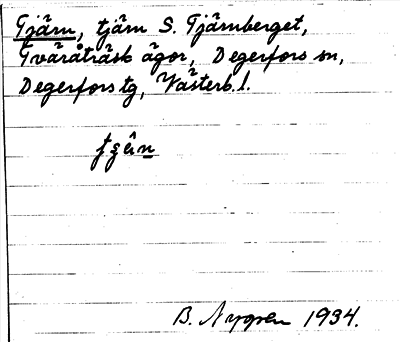 Tjärn, tjärn S. Tjärnberget,
Tväråträsk ägor, Degerfors sn,
Degerfors tg, Västerb. l.
B. Nygren 1934.